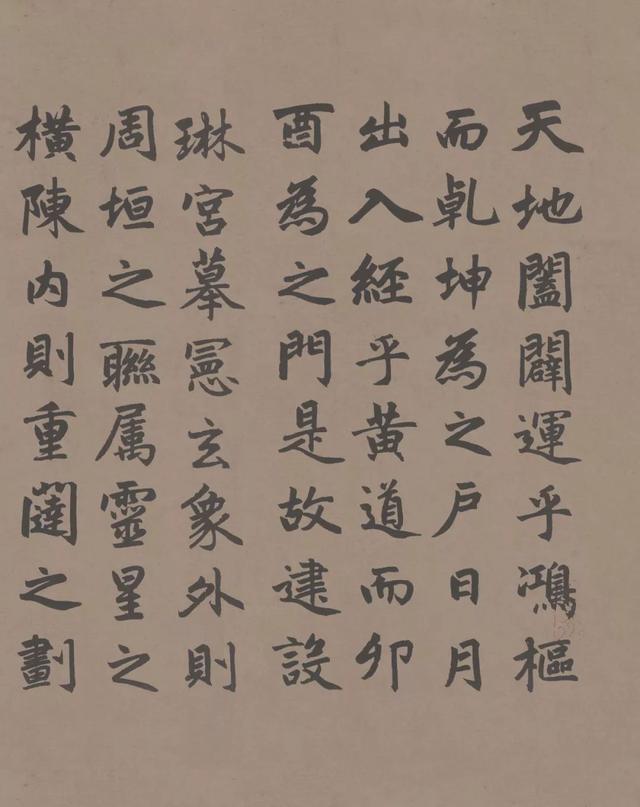 天地闔闢運乎鴻樞
而乹坤為之戶日月
出入經乎黃道而卯
酉為之門是故建設
琳宮摹憲玄象外則
周垣之聮属靈星之
横陳内則重闥之劃